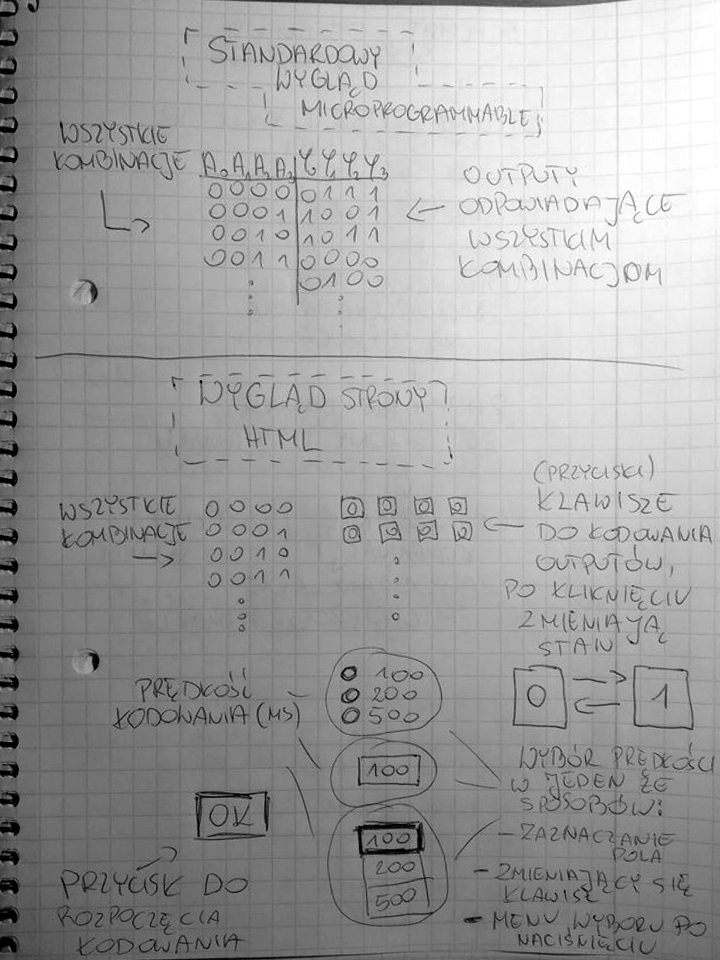 STANDARDOWY
WYGLĄD
MICROPROGRAMMABLE
WSZYSTKIE
KOMBINACJE
A₀ A₁ A₂ A₃ Y₀ Y₁ Y₂ Y₃
0 0 0 0 0 1 1 1
0 0 0 1 1 0 0 1
0 0 1 0 1 0 1 1
0 0 1 1 0 0 0 0
0 1 0 0
OUTPUTY
ODPOWIADAJĄCE
WSZYSTKIM
KOMBINACJOM
WYGLĄD STRONY
HTML
WSZYSTKIE
KOMBINACJE
0 0 0 0
0 0 0 1
0 0 1 0
0 0 1 1
0 0 0 0
0 0 0 0
(PRZYCISKI)
KLAWISZE
DO KODOWANIA
OUTPUTÓW,
PO KLIKNIĘCIU
ZMIENIAJĄ
STAN
0 1
PRĘDKOŚĆ
KODOWANIA (MS)
100
200
500
100
100
200
500
WYBÓR PRĘDKOŚCI
W JEDEN ZE
SPOSOBÓW:
- ZAZNACZANIE
POLA
- ZMIENIAJĄCY SIĘ
KLAWISZ
- MENU WYBORU PO
NACIŚNIĘCIU
OK
PRZYCISK DO
ROZPOCZĘCIA
KODOWANIA